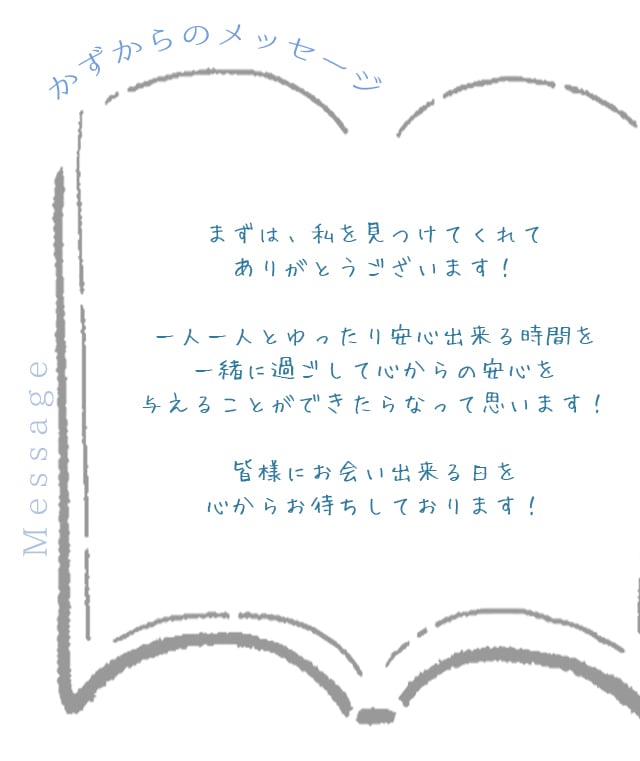 かずからのメッセージ
まずは、私を見つけてくれて
ありがとうございます！
一人一人とゆったり安心出来る時間を
一緒に過ごして心からの安心を
与えることができたらなって思います！
皆様にお会い出来る日を
心からお待ちしております！
Message